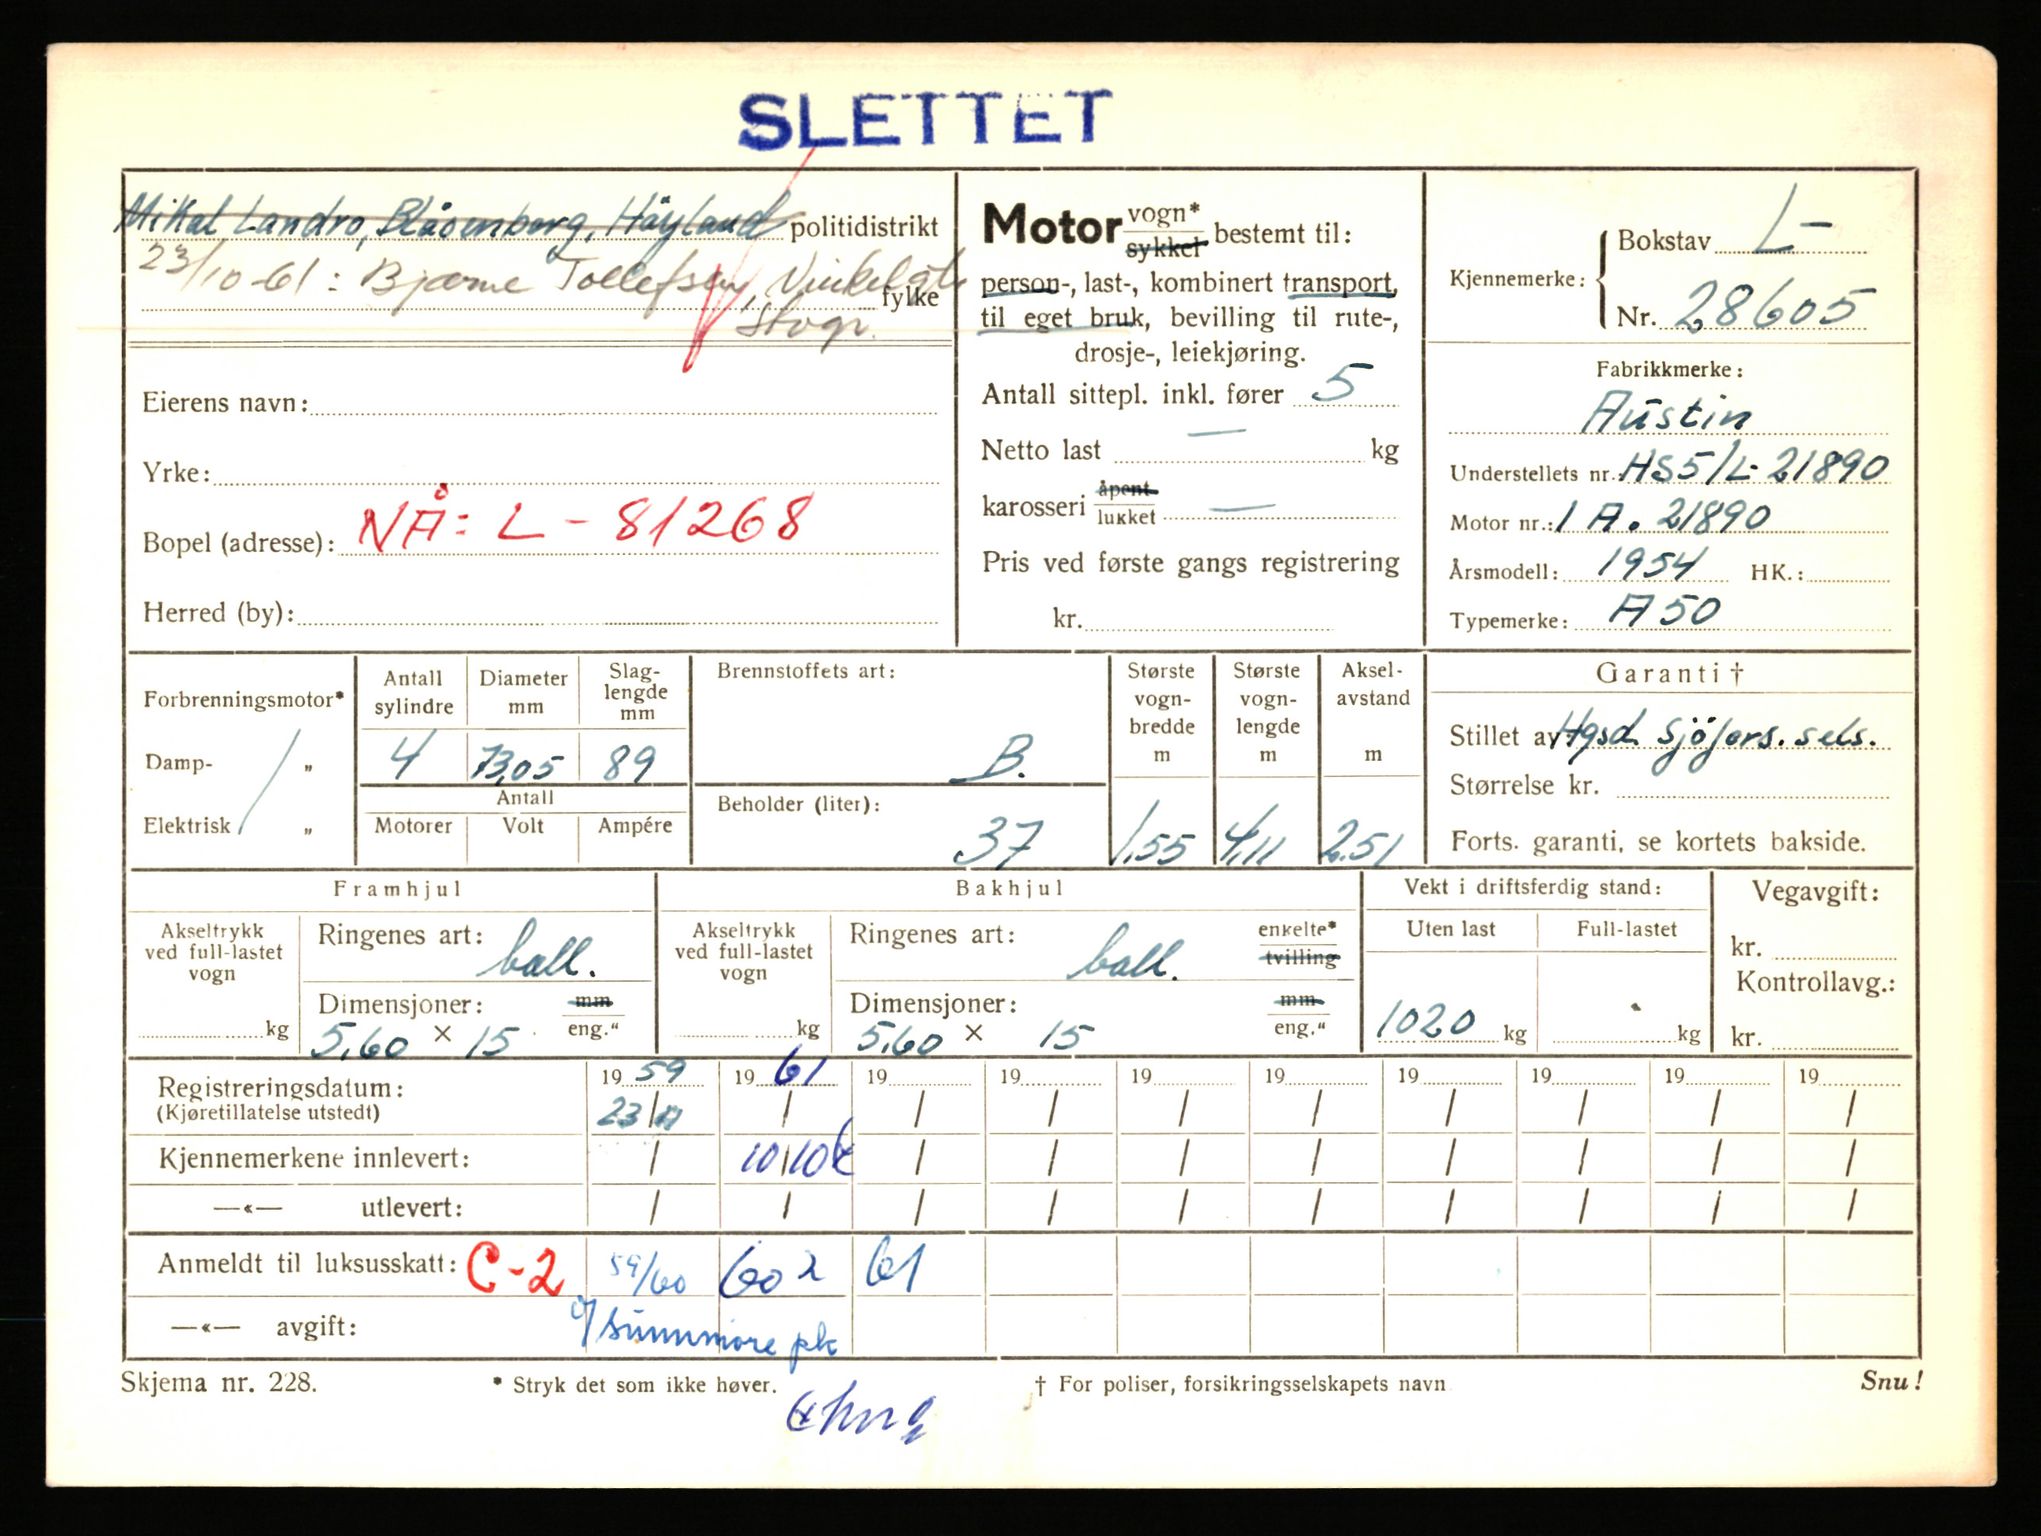 SLETTET
Mikal Landro, Blåsenborg, Høyland politidistrikt
23/10-61: Bjarne Tollefsen, Vinkelgt. fylke
Stvgr.
Eierens navn:
Yrke:
Bopel (adresse): NÅ: L - 81268
Herred (by):
Motor vogn* sykkel bestemt til:
person-, last-, kombinert transport,
til eget bruk, bevilling til rute-,
drosje-, leiekjøring.
Antall sittepl. inkl. fører 5
Netto last — kg
karosseri åpent lukket —
Pris ved første gangs registrering
kr.
Kjennemerke: Bokstav L-
Nr. 28605
Fabrikkmerke:
Austin
Understellets nr. HS5/L-21890
Motor nr.: 1 A. 21890
Årsmodell: 1954 HK.:
Typemerke: A50
Forbrenningsmotor*
Damp- „
Elektrisk „
Antall sylindre 4
Diameter mm 73,05
Slaglengde mm 89
Antall
Motorer Volt Ampére
Brennstoffets art: B.
Beholder (liter): 37
Største vognbredde m 1.55
Største vognlengde m 4,11
Akselavstand m 2.51
Garanti †
Stillet av Hgsd. Sjöfors. sels.
Størrelse kr.
Forts. garanti, se kortets bakside.
Framhjul
Akseltrykk ved full-lastet vogn kg
Ringenes art: ball.
Dimensjoner: mm eng."
5,60 × 15
Bakhjul
Akseltrykk ved full-lastet vogn kg
Ringenes art: ball. enkelte* tvilling
Dimensjoner: mm eng."
5,60 × 15
Vekt i driftsferdig stand:
Uten last Full-lastet
1020 kg kg
Vegavgift:
kr.
Kontrollavg.:
kr.
Registreringsdatum: 19 59 19 61 19 19 19 19 19 19 19 19
(Kjøretillatelse utstedt) 23/11 / / / / / / / / /
Kjennemerkene innlevert: / 10/10 / / / / / / / /
—«— utlevert: / / / / / / / / / /
Anmeldt til luksusskatt: C-2 59/60 60 2 61
—«— avgift: Sunnmøre pk
Skjema nr. 228. * Stryk det som ikke høver. † For poliser, forsikringsselskapets navn Snu!